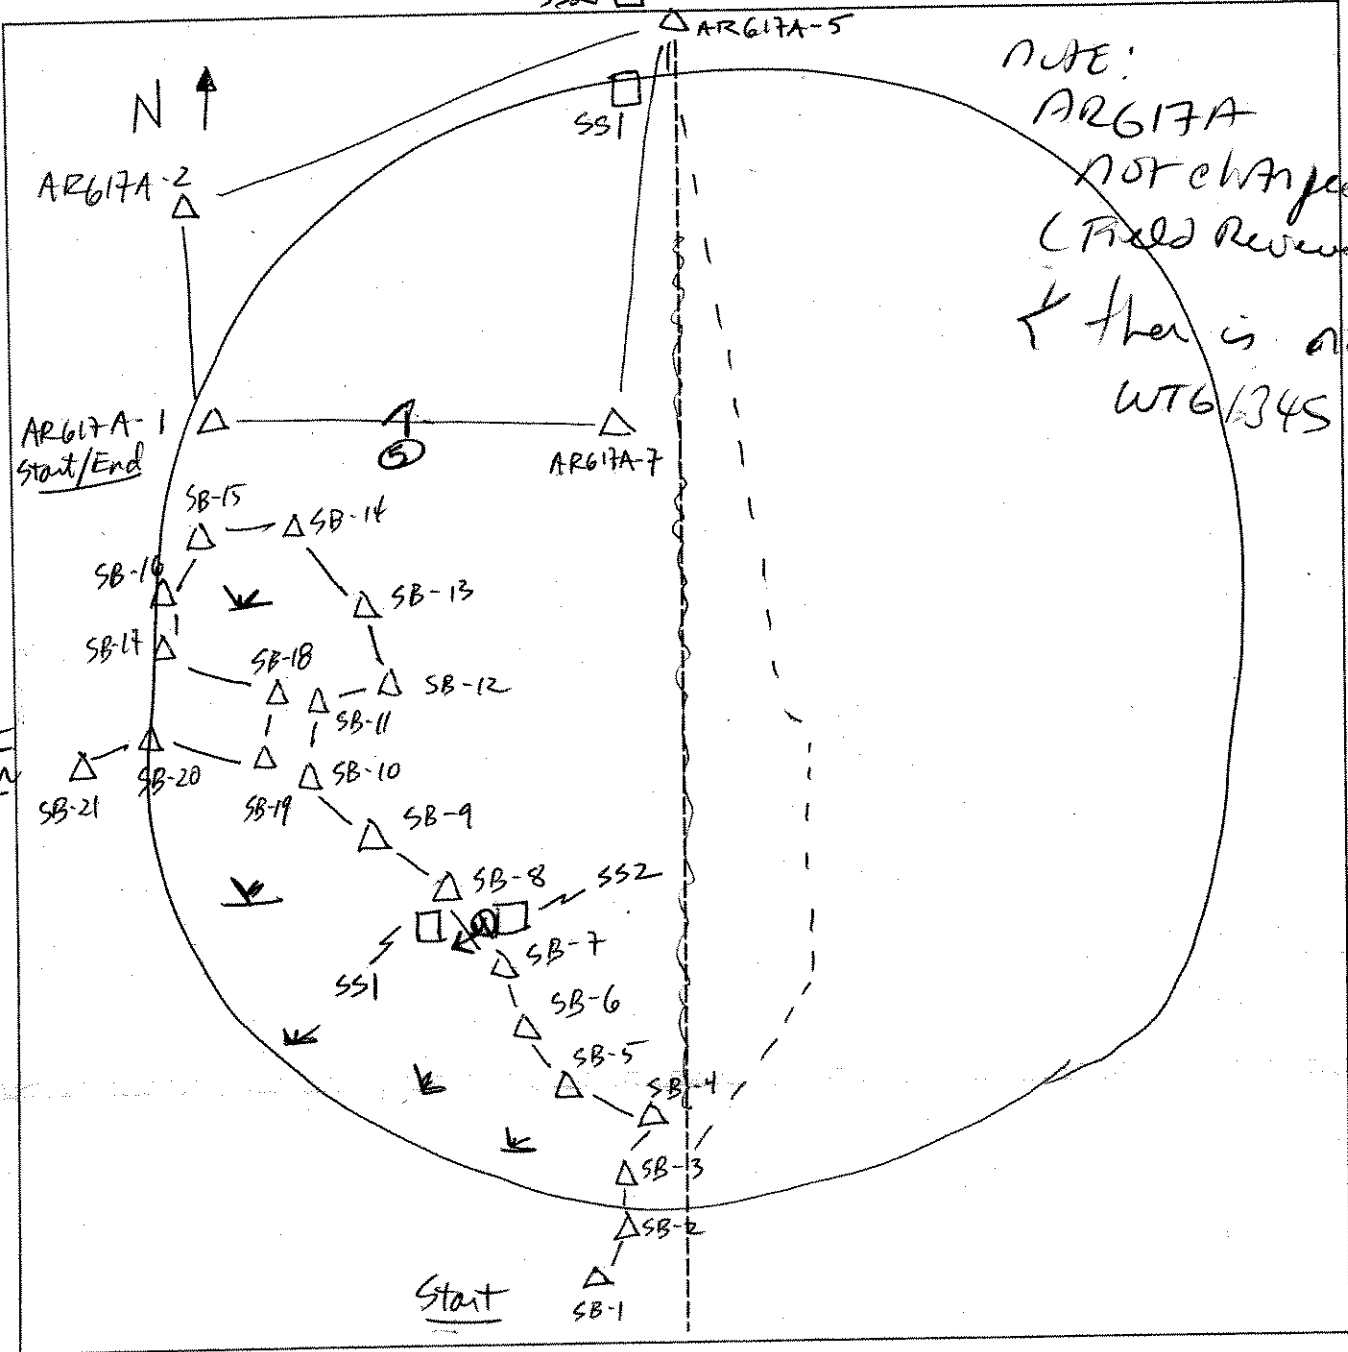 AR617A-5
N
SS1
AR617A-2
NOTE:
AR617A
not change
(Field Review
ther is
WT61345
AR617A-1
Start/End
5
AR617A-7
SB-15
SB-14
SB-16
SB-13
SB-17
SB-18
SB-12
SB-11
SB-20
SB-10
SB-21
SB-19
SB-9
SB-8
SS2
SB-7
SS1
SB-6
SB-5
SB-4
SB-3
SB-2
Start
SB-1